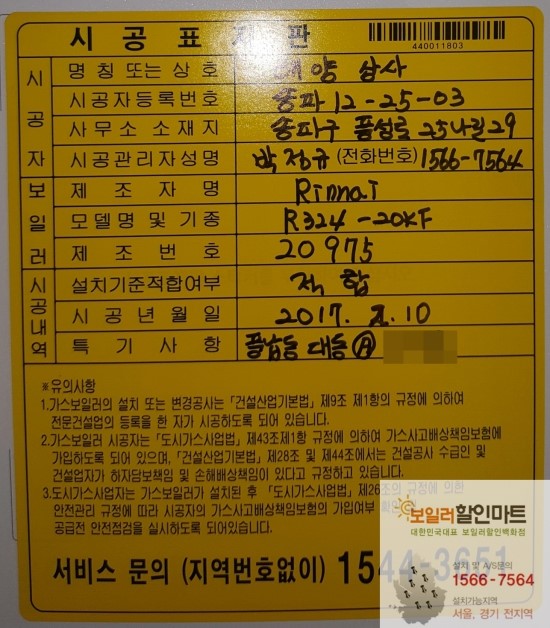 시 공 표 지 판
440011803
시 공 자
명 칭 또는 상 호 태양 삼사
시공자등록번호 송파 12-25-03
사 무 소 소 재 지 송파구 풍성로 25나길 29
시공관리자성명 박정규 (전화번호) 1566-7564
보 일 러
제 조 자 명 Rinnai
모 델 명 및 기 종 R324-20KF
제 조 번 호 20975
시공내역
설치기준적합여부 적 합
시 공 년 월 일 2017. 2. 10
특 기 사 항 풍납동 대동 Ⓐ
※유의사항
1.가스보일러의 설치 또는 변경공사는 「건설산업기본법」 제9조 제1항의 규정에 의하여
전문건설업의 등록을 한 자가 시공하도록 되어 있습니다.
2.가스보일러 시공자는 「도시가스사업법」 제43조제1항 규정에 의하여 가스사고배상책임보험에
가입하도록 되어 있으며, 「건설산업기본법」 제28조 및 제44조에서는 건설공사 수급인 및
건설업자가 하자담보책임 및 손해배상책임이 있다고 규정하고 있습니다.
3.도시가스사업자는 가스보일러가 설치된 후 「도시가스사업법」 제26조의 규정에 의한
안전관리 규정에 따라 시공자의 가스사고배상책임보험의 가입여부 확인
공급전 안전점검을 실시하도록 되어있습니다.
서비스 문의 (지역번호없이) 1544-3651
보일러할인마트
대한민국대표 보일러할인백화점
설치 및 A/S문의
1566-7564
설치가능지역
서울, 경기 전지역